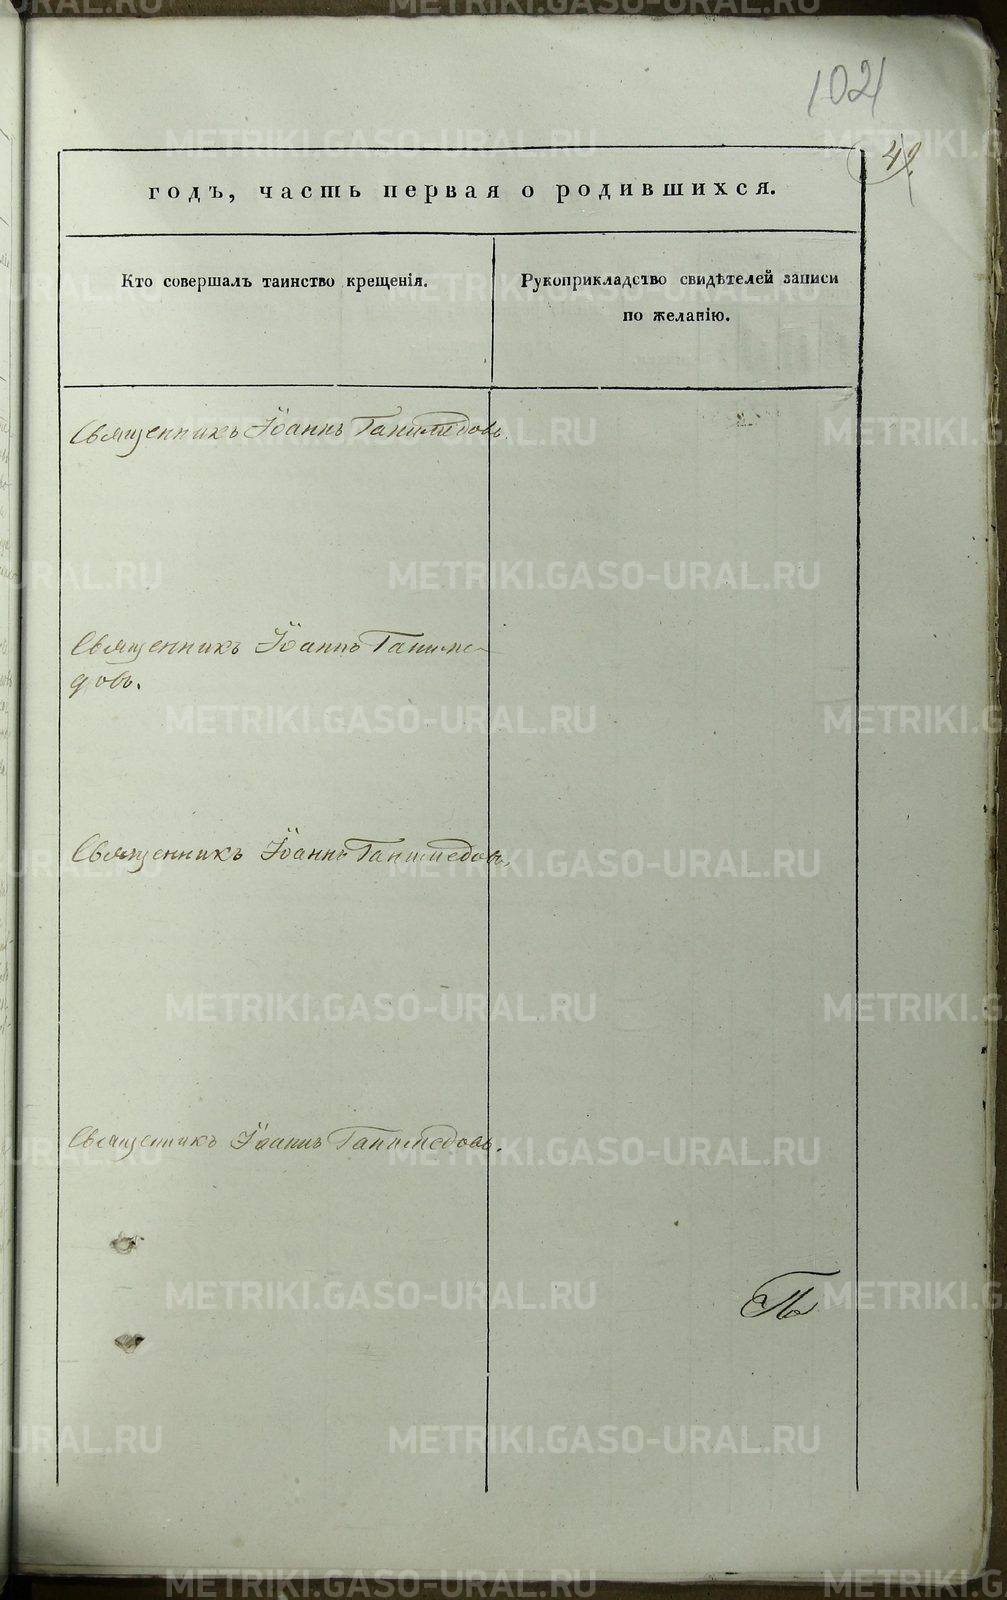 102
49
годъ, часть первая о родившихся.
Кто совершалъ таинство крещенія.
Рукоприкладство свидѣтелей записи
по желанію.
Священникъ Іоаннъ Ганимедовъ.
Священникъ Іоаннъ Ганиме-
довъ.
Священникъ Іоаннъ Ганимедовъ.
Священникъ Іоаннъ Ганимедовъ.
METRIKI.GASO-URAL.RU